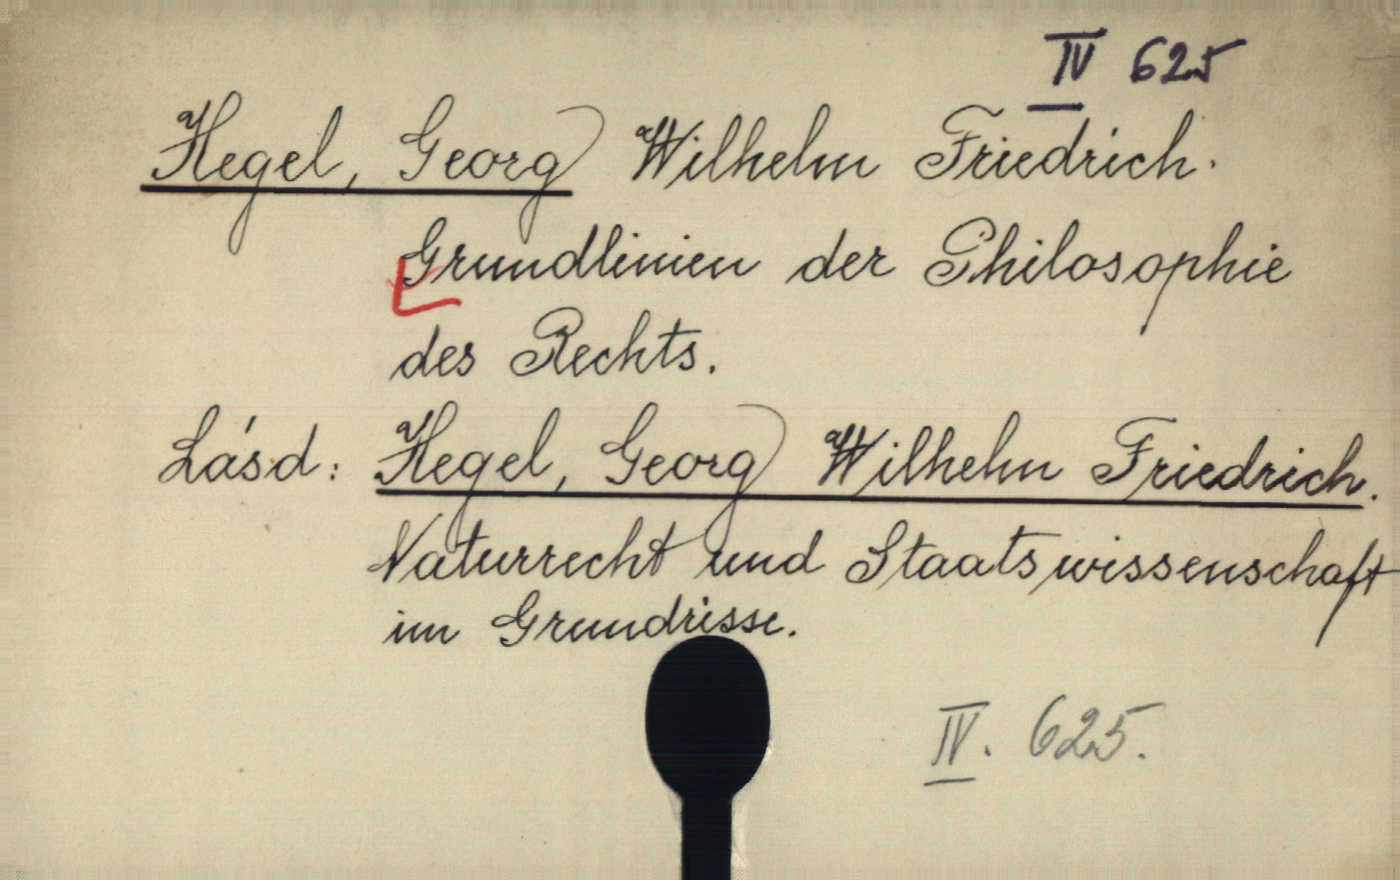 IV 625
Hegel, Georg Wilhelm Friedrich.
Grundlinien der Philosophie
des Rechts.
Lásd: Hegel, Georg Wilhelm Friedrich.
Naturrecht und Staatswissenschaft
im Grundrisse.
IV. 625.